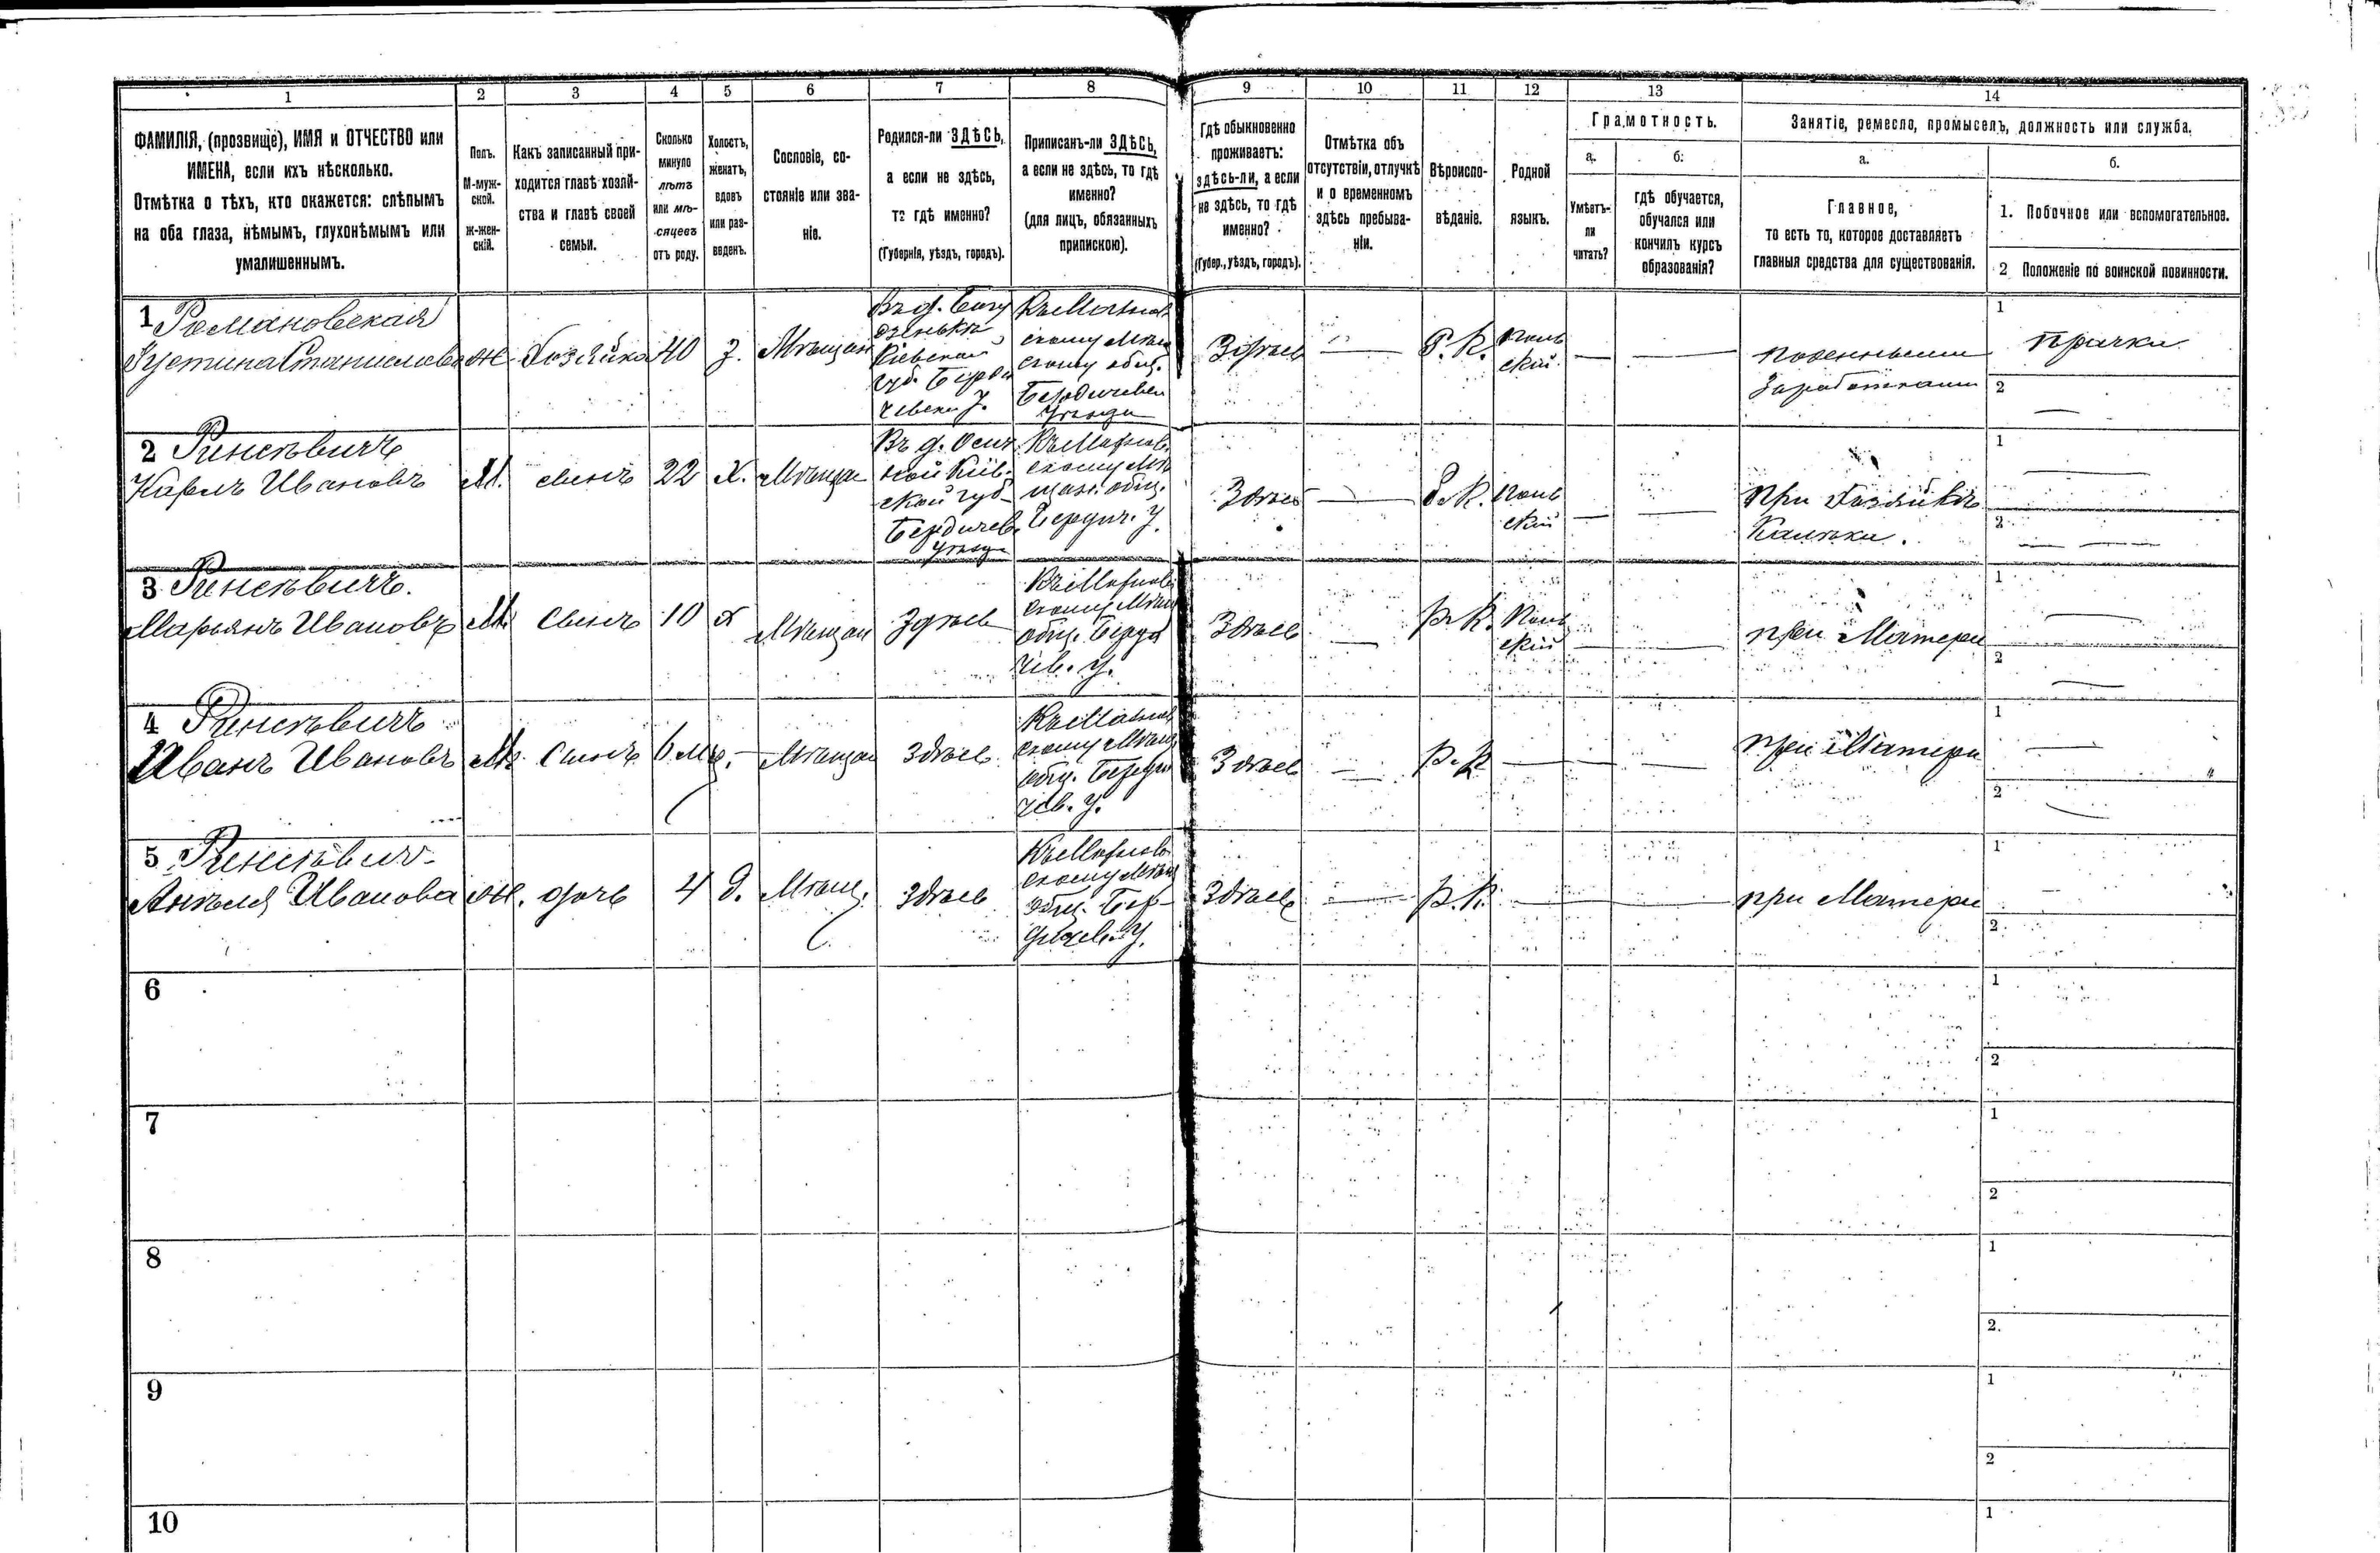 1
2
3
4
5
6
7
8
9
10
11
12
13
14
ФАМИЛІЯ, (прозвище), ИМЯ и ОТЧЕСТВО или
ИМЕНА, если ихъ нѣсколько.
Отмѣтка о тѣхъ, кто окажется: слѣпымъ
на оба глаза, нѣмымъ, глухонѣмымъ или
умалишеннымъ.
Полъ.
М-муж-
ской.
ж-жен-
скій.
Какъ записанный при-
ходится главѣ хозяй-
ства и главѣ своей
семьи.
Сколько
минуло
лѣтъ
или мѣ-
сяцевъ
отъ роду.
Холостъ,
женатъ,
вдовъ
или раз-
веденъ.
Сословіе, со-
стояніе или зва-
ніе.
Родился-ли ЗДѢСЬ,
а если не здѣсь,
то гдѣ именно?
(Губернія, уѣздъ, городъ).
Приписанъ-ли ЗДѢСЬ,
а если не здѣсь, то гдѣ
именно?
(для лицъ, обязанныхъ
припискою).
Гдѣ обыкновенно
проживаетъ:
здѣсь-ли, а если
не здѣсь, то гдѣ
именно?
(Губер., уѣздъ, городъ).
Отмѣтка объ
отсутствіи, отлучкѣ
и о временномъ
здѣсь пребыва-
ніи.
Вѣроиспо-
вѣданіе.
Родной
языкъ.
Грамотность.
а.
Умѣетъ-
ли
читать?
б.
гдѣ обучается,
обучался или
кончилъ курсъ
образованія?
Занятіе, ремесло, промыселъ, должность или служба.
а.
Главное,
то есть то, которое доставляетъ
главныя средства для существованія.
б.
1. Побочное или вспомогательное.
2 Положеніе по воинской повинности.
1 Романовская
Устина Станиславова
ж
Хозяйка
40
З.
Мѣщан
Въ д.
Кіевской
губ. Берди
чевск У.
скому Мѣщ
скому общ.
Бердичевск
Уѣзда
Здѣсь
—
Р. К.
Поль
скій
—
—
Поденными
Заработками
1
Прачка
2
—
2 Ринкѣвичъ
Карлъ Ивановъ
М.
сынъ
22
Х.
Мѣщан
Въ д.
Кіев-
ской губ
Бердичев.
Уѣзда
скому Мѣ
щан. общ.
Бердич. У.
Здѣсь
—
Р. К.
Поль
скій
—
—
При Хозяйкѣ
Калѣка.
1
—
2
—
3 Ринкѣвичъ.
Марьянъ Ивановъ
М.
Сынъ
10
Х
Мѣщан
Здѣсь
скому Мѣщ
общ. Берди
чев. У.
Здѣсь
—
Р. К.
Поль
скій
—
—
при Матери
1
—
2
—
4 Ринкѣвичъ
Иванъ Ивановъ
М.
Сынъ
6 мц.
—
Мѣщан
Здѣсь
скому Мѣщ
общ. Берди
чев. У.
Здѣсь
—
Р. К
—
—
при Матери
1
—
2
—
5 Ринкѣвич
Анѣеля Иванова
ж.
дочь
4
д.
Мѣщ.
Здѣсь
скому Мѣщ
общ. Бер-
дичев. У.
Здѣсь
—
Р. К.
—
—
при Матери
1
—
2.
6
1
2
7
1
2
8
1
2.
9
1
2
10
1